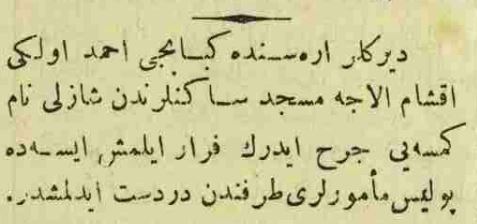 دیركلر اره‌سنده كبابجی احمد اولكی
اقشام الاجه مسجد ساكنلرندن شازلی نام
كمسه‌یی جرح ایدرك فرار ایلمش ایسه‌ده
پولیس مأمورلری طرفندن دردست ایدلمشدر.